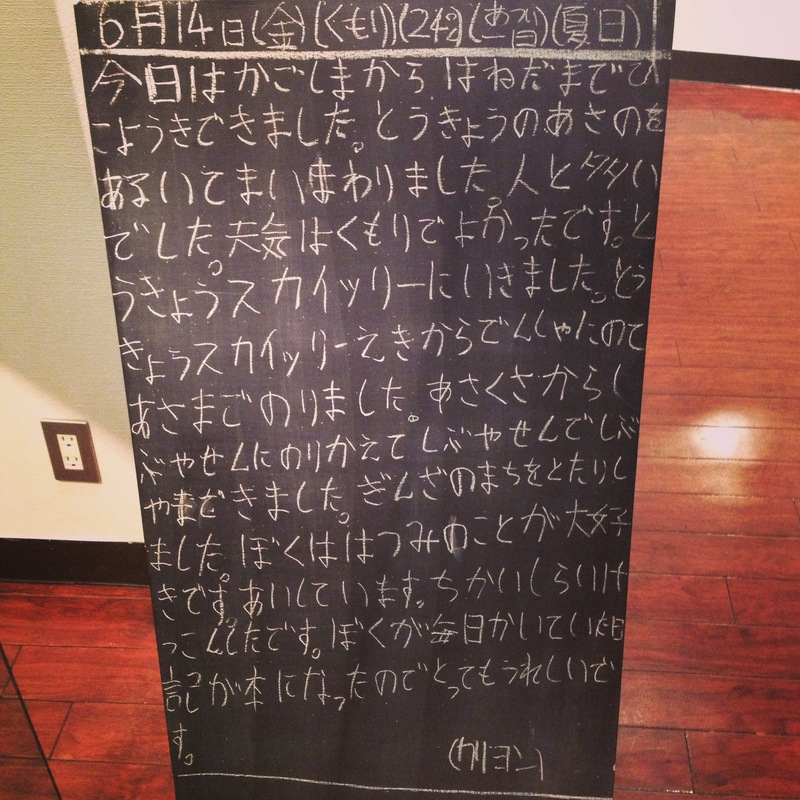 6月14日(金)(くもり)(24℃)(夏日)
今日はかごしまからはねだまでひ
こようきできました。とうきょうのあさのを
あるいてまいまわりました。人と多い
でした。天気はくもりでよかったです。と
うきょうスカイツリーにいきました。とう
きょうスカイツリーえきからでんしゃたのて
あさまでのりました。あさくさからし
ぶやせんにのりかえてしぶやせんでしぶ
やまできました。ぎんざのまちをとたりし
ました。ぼくははつみのことが大好
きです。あいしています。ちかいしらいけ
っこんしたです。ぼくが毎日かいていた日
記が本になったのでとってもうれしいで
す。
(カリヨン)